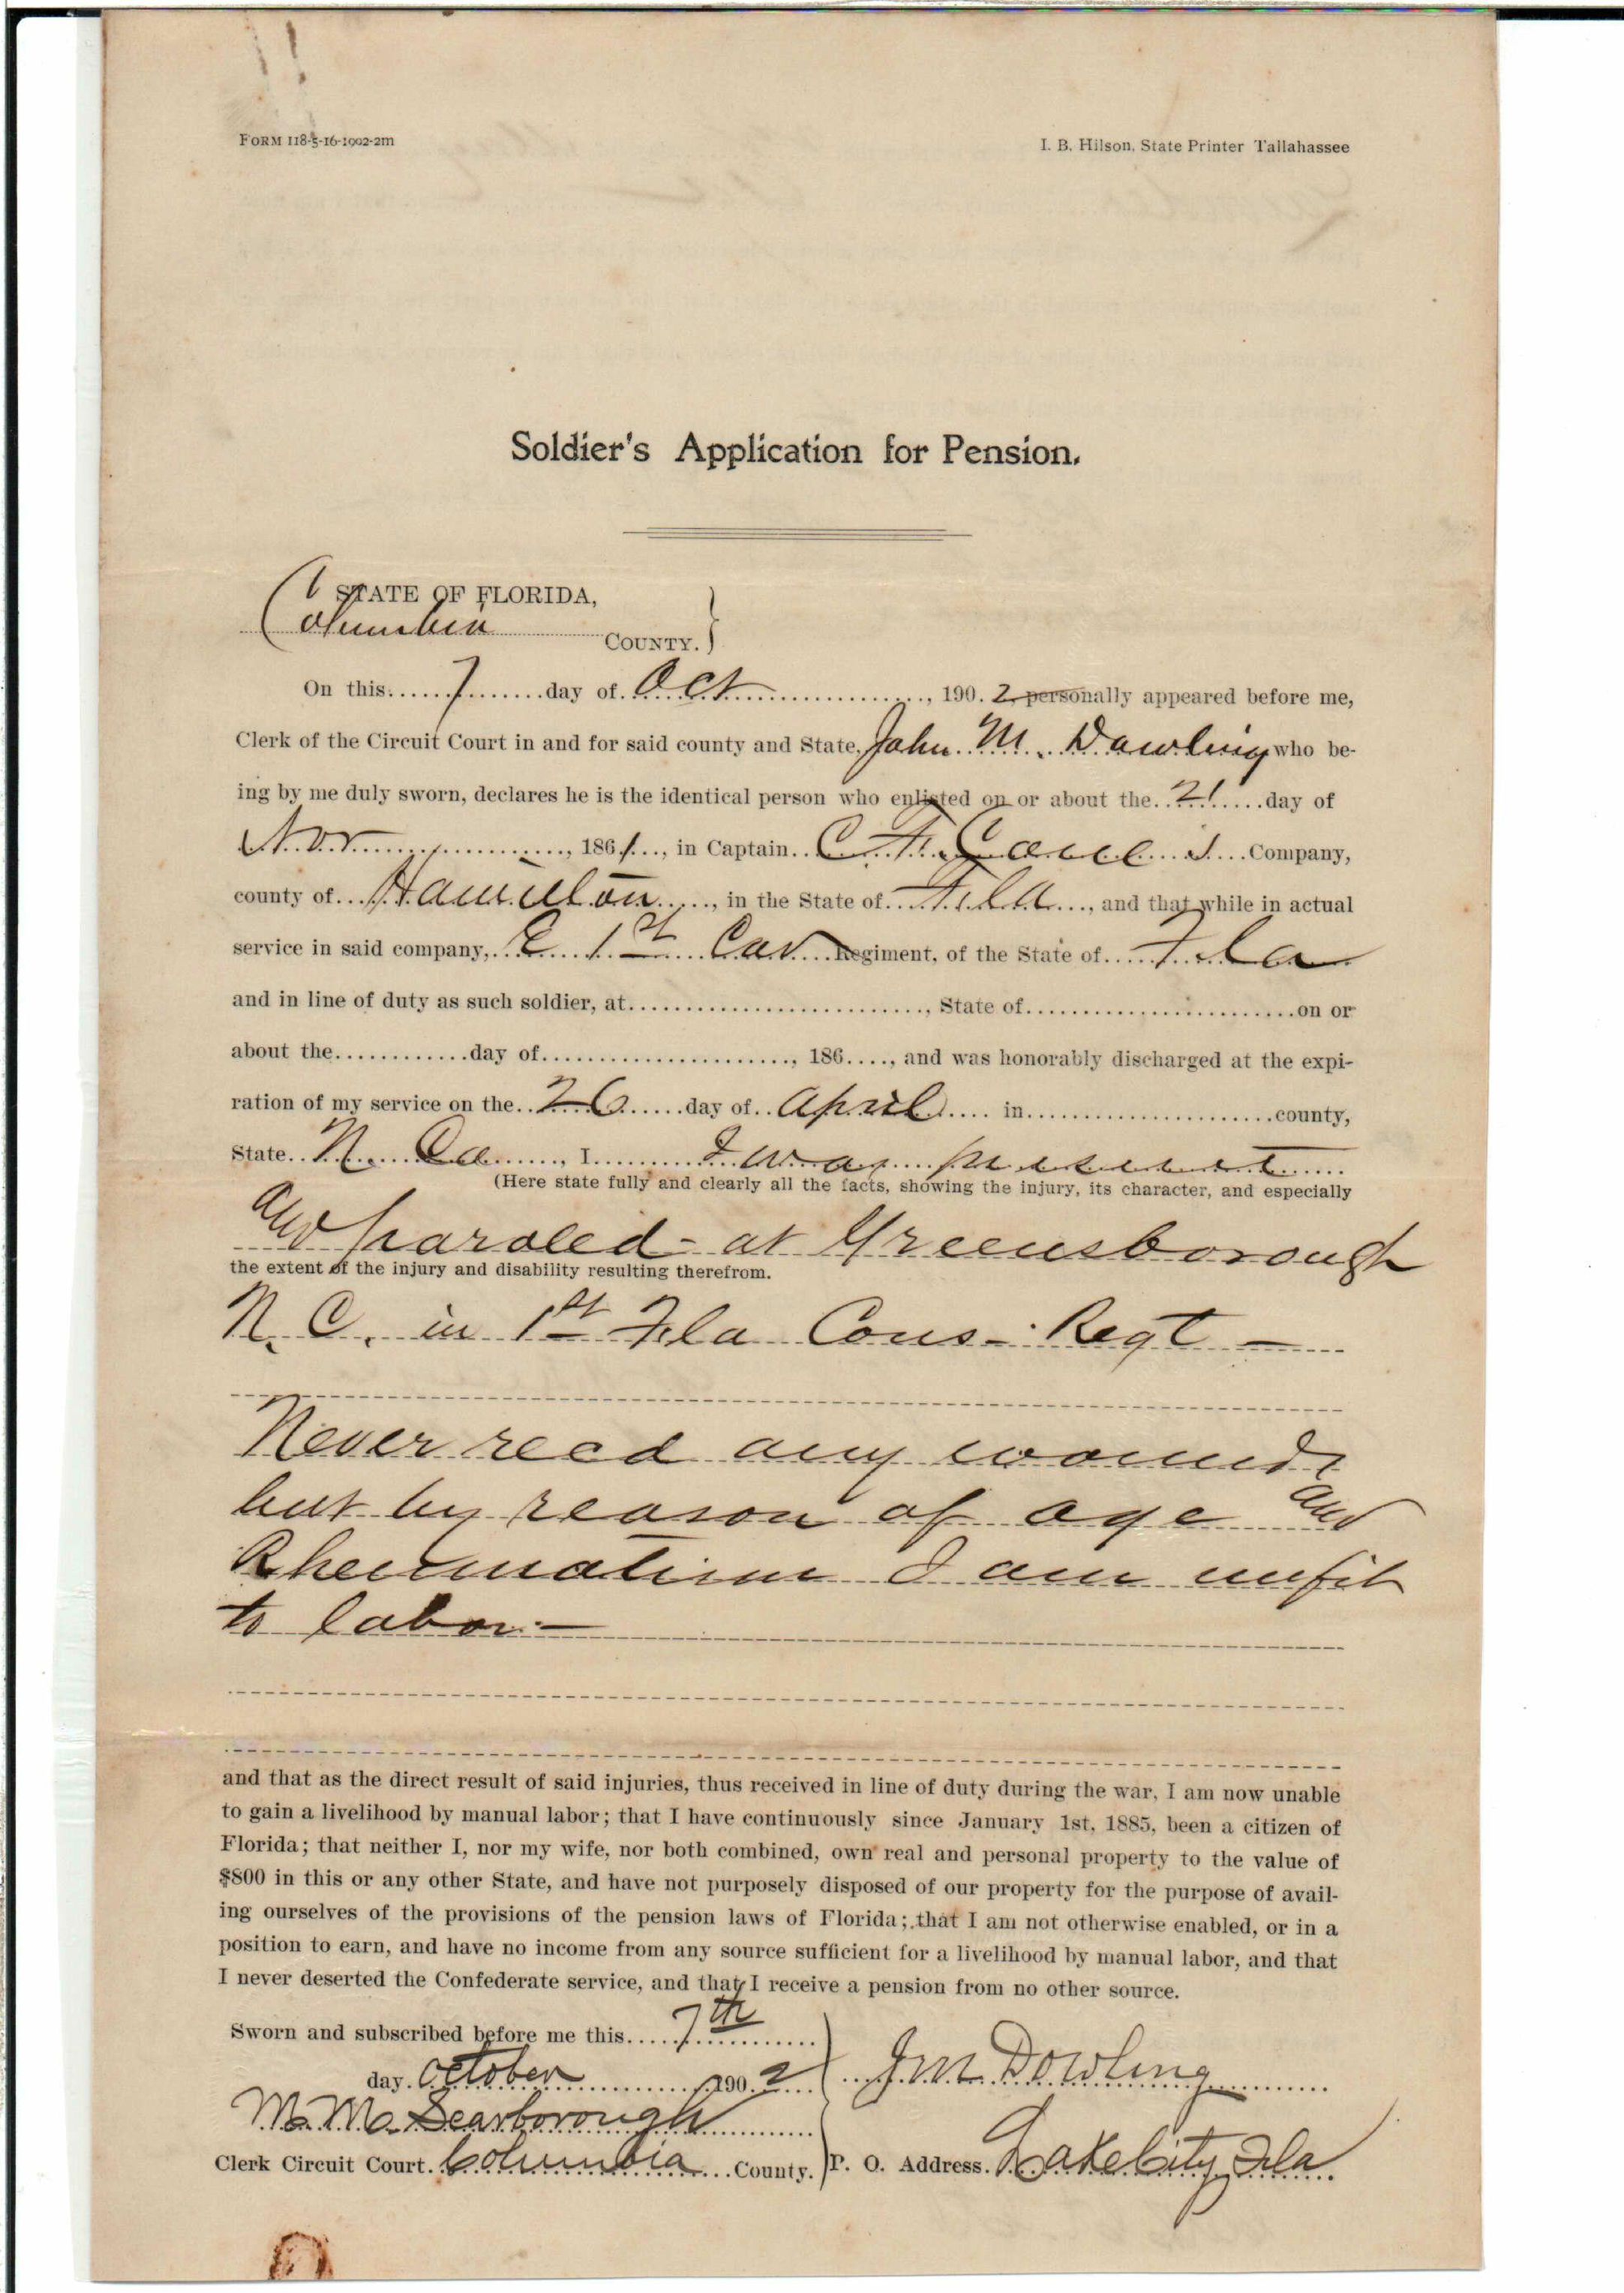 FORM 118-5-16-1902-2m
I. B. Hilson, State Printer Tallahassee
Soldier's Application for Pension.
STATE OF FLORIDA,
Columbia COUNTY.
On this 7 day of Oct, 1902, personally appeared before me,
Clerk of the Circuit Court in and for said county and State, John M. Dowling who be-
ing by me duly sworn, declares he is the identical person who enlisted on or about the 21 day of
Nov, 1861, in Captain C. F. Company,
county of Hamilton, in the State of Fla, and that while in actual
service in said company, E 1st Cav Regiment, of the State of Fla
and in line of duty as such soldier, at, State of on or
about the day of, 186, and was honorably discharged at the expi-
ration of my service on the 26 day of April in county,
State N. Ca, I I was present
(Here state fully and clearly all the facts, showing the injury, its character, and especially
and paroled - at Greensborough
the extent of the injury and disability resulting therefrom.
N. C. in 1st Fla Cons - Regt -
Never recd any wounds
but by reason of age and
Rheumatism I am unfit
to labor -
and that as the direct result of said injuries, thus received in line of duty during the war, I am now unable
to gain a livelihood by manual labor; that I have continuously since January 1st, 1885, been a citizen of
Florida; that neither I, nor my wife, nor both combined, own real and personal property to the value of
$800 in this or any other State, and have not purposely disposed of our property for the purpose of avail-
ing ourselves of the provisions of the pension laws of Florida; that I am not otherwise enabled, or in a
position to earn, and have no income from any source sufficient for a livelihood by manual labor, and that
I never deserted the Confederate service, and that I receive a pension from no other source.
Sworn and subscribed before me this 7th
day October 1902
J M Dowling
M. M. Scarborough
Clerk Circuit Court. Columbia County.
P. O. Address. Lake City Fla